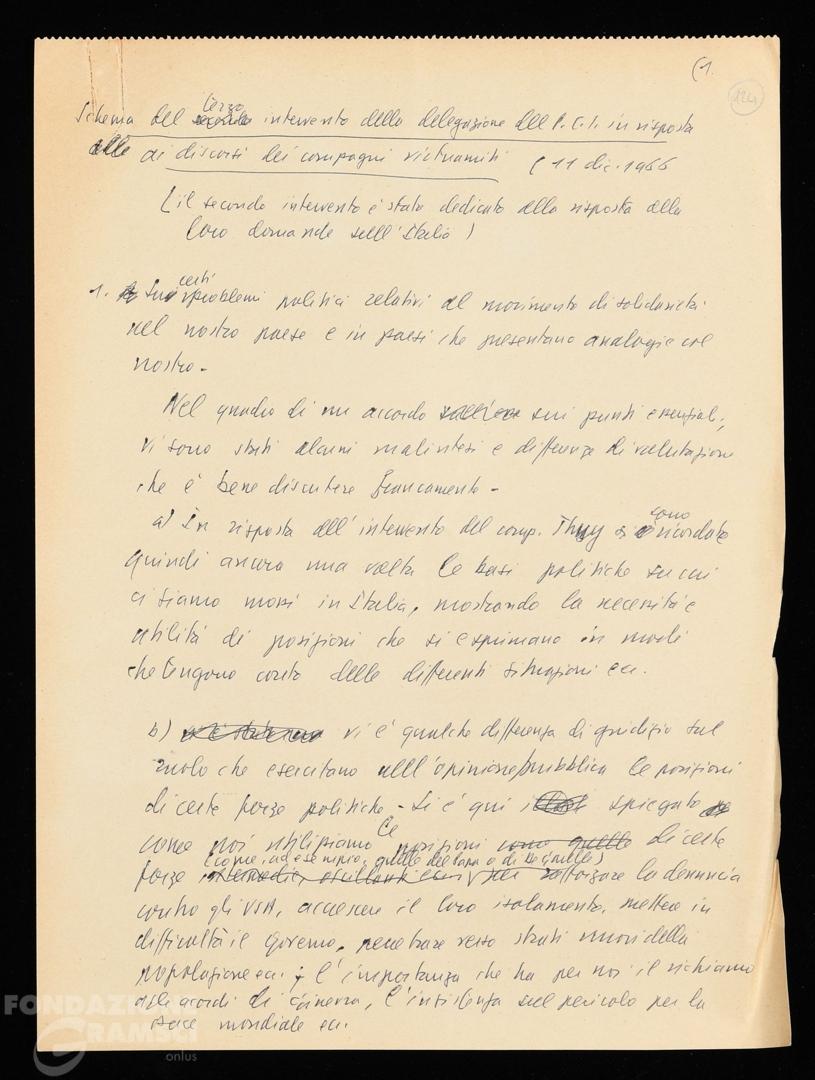 (1.
124
Schema del secondo terzo intervento della delegazione del P.C.I. in risposta
alle ai discorsi dei compagni vietnamiti (11 dic. 1966
(il secondo intervento è stato dedicato alla risposta alla
loro domande sull'Italia)
1. Sui certi problemi politici relativi al movimento di solidarietà
nel nostro paese e in paesi che presentano analogie col
nostro.
Nel quadro di un accordo sui punti essenziali,
vi sono stati alcuni malintesi e differenze di valutazione
che è bene discutere francamente -
a) In risposta all'intervento del comp. Thuy si sono ricordate
quindi ancora una volta le basi politiche su cui
ci siamo mossi in Italia, mostrando la necessità e
utilità di posizioni che si esprimano in modi
che tengano conto delle differenti situazioni ecc.
b) vi è qualche differenza di giudizio sul
ruolo che esercitano sull'opinione pubblica le posizioni
di certe forze politiche - Si è qui spiegato
come noi utilizziamo le posizioni sono quelle di certe
(come, ad esempio, quelle del Papa o di De Gaulle)
forze intermedie, oscillanti ecc. per rafforzare la denuncia
contro gli USA, accrescere il loro isolamento, mettere in
difficoltà il governo, penetrare verso strati nuovi della
popolazione ecc; l'importanza che ha per noi il richiamo
agli accordi di Ginevra, l'insistenza sul pericolo per la
pace mondiale ecc.
FONDAZIONE
GRAMSCI
onlus